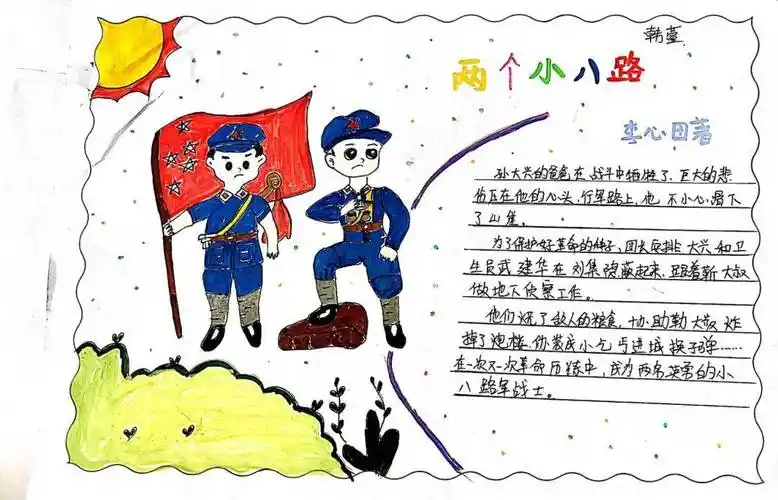 韩萱
两个小八路
李心田著
孙大兴的爸爸在战斗中牺牲了,巨大的悲
伤压在他的心头,行军路上,他不小心滑下
了山崖。
为了保护好革命的种子,团长安排大兴和卫
生员武建华在刘集隐蔽起来,跟着靳大叔
做地下侦察工作。
他们烧了敌人的粮食,协助勤大叔炸
掉了炮楼,伪装成小乞丐进城换子弹……
在一次又一次革命历练中,成为两名英勇的小
八路军战士。